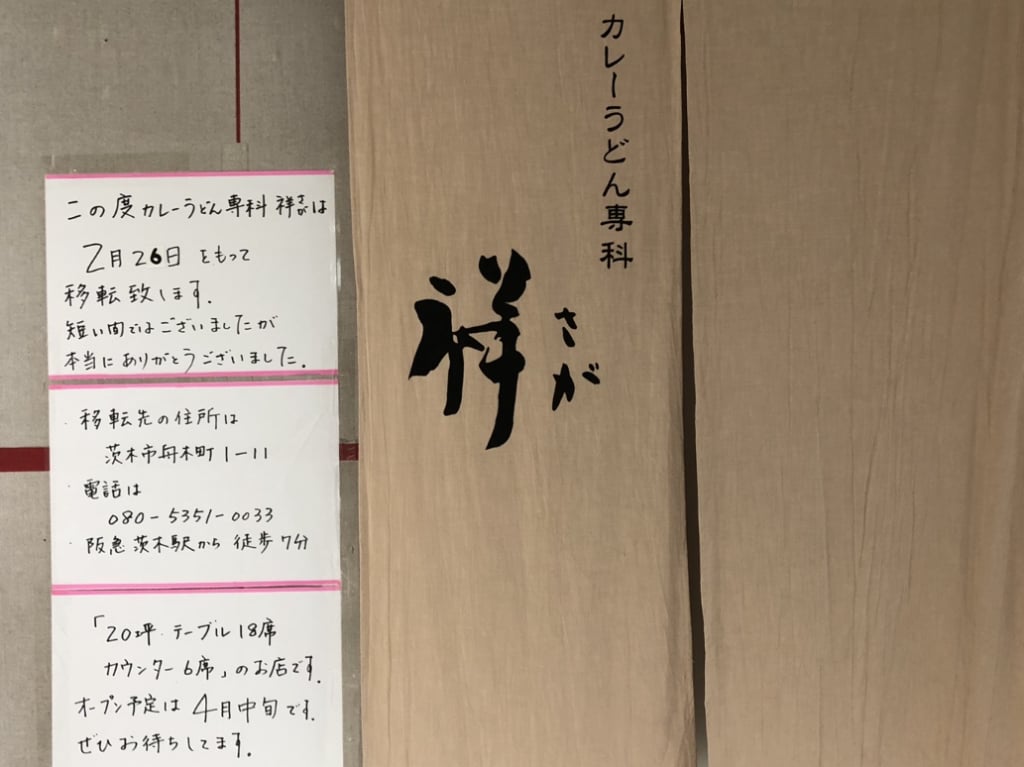 この度カレーうどん専科 祥さがは
2月26日 をもって
移転致します.
短い間ではございましたが
本当にありがとうございました.
・移転先の住所は
茨木市舟木町1-11
・電話は
080-5351-0033
・阪急茨木駅から 徒歩7分
「20坪・テーブル18席
カウンター6席」のお店です.
オープン予定は 4月中旬です.
ぜひお待ちしてます.
カレーうどん専科
祥
さが